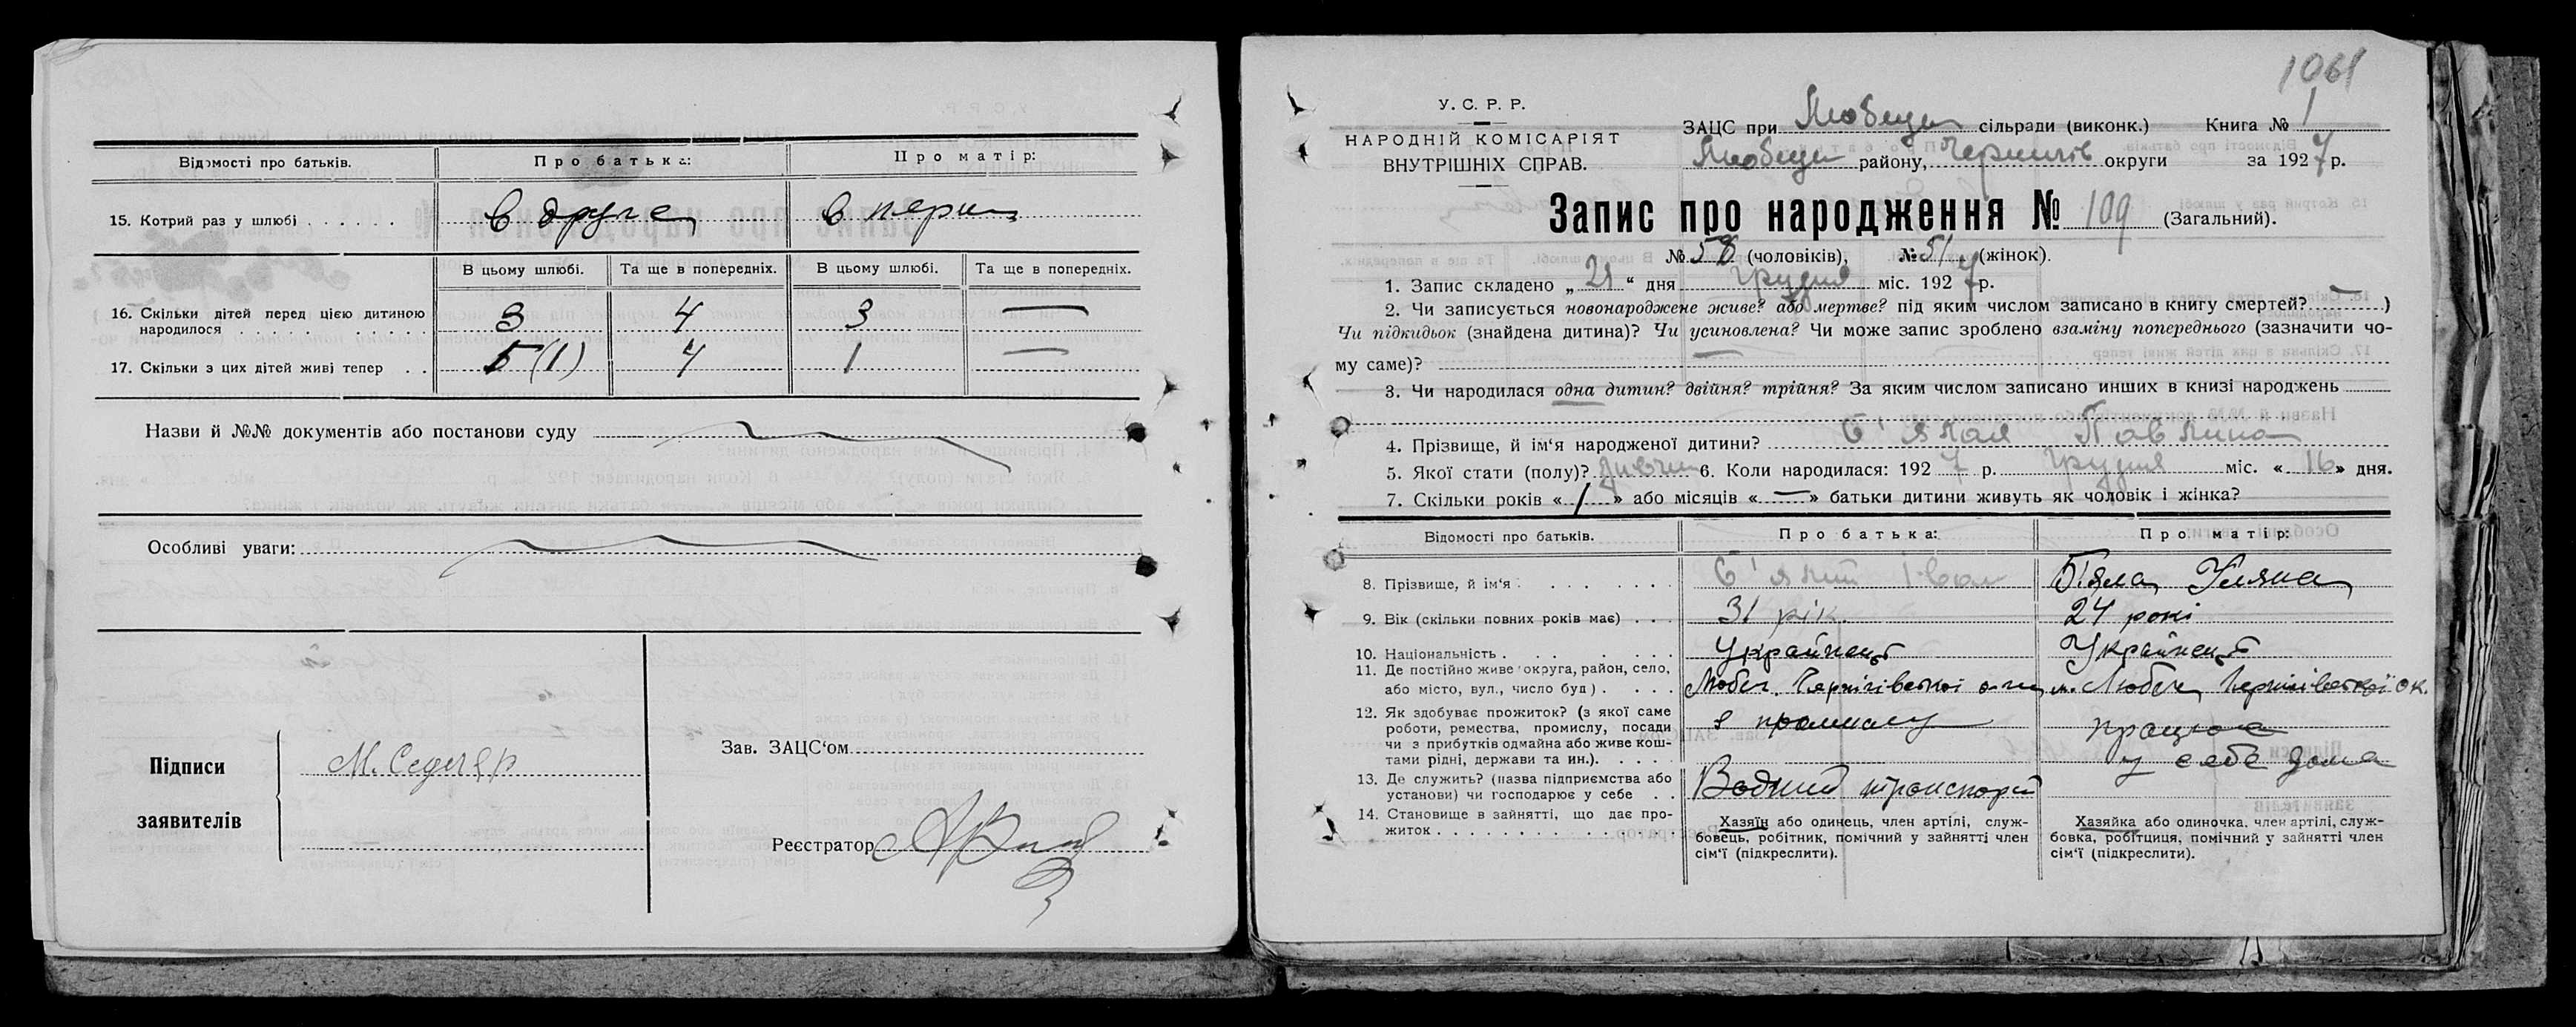 Відомості про батьків. Про батька: Про матір:
15. Котрий раз у шлюбі . . . . . . в друге в перш
В цьому шлюбі. Та ще в попередніх. В цьому шлюбі. Та ще в попередніх.
16. Скільки дітей перед цією дитиною
народилося . . . . . . . . . . 3 4 3 —
17. Скільки з цих дітей живі тепер . . 5 (1) 4 1 —
Назви й №№ документів або постанови суду
Особливі уваги:
Підписи
заявителів
Зав. ЗАЦС‘ом
Реєстратор
1061
У. С. Р. Р.
НАРОДНІЙ КОМІСАРІЯТ
ВНУТРІШНІХ СПРАВ.
ЗАЦС при Любецьк сільради (виконк.) Книга № 1
Любецьк району, Чернигів округи за 1927 р.
Запис про народження № 109 (Загальний).
№ 58 (чоловіків), № 51 (жінок).
1. Запис складено „ 21 “ дня Грудня міс. 1927 р.
2. Чи записується новонароджене живе? або мертве? під яким числом записано в книгу смертей? — )
Чи підкидьок (знайдена дитина)? Чи усиновлена? Чи може запис зроблено взаміну попереднього (зазначити чо-
му саме)?
3. Чи народилася одна дитин? двійня? трійня? За яким числом записано инших в книзі народжень
4. Прізвище, й ім‘я народженої дитини? Б'ялая Павлина
5. Якої стати (полу)? дивчина 6. Коли народилася: 1927 р. Грудня міс. « 16 » дня.
7. Скільки років « 1 » або місяців « — » батьки дитини живуть як чоловік і жінка?
Відомості про батьків. Про батька: Про матір:
8. Прізвище, й ім‘я . . . . . Б'ялий Іван Б'яла Уляна
9. Вік (скільки повних років має) . . . 31 рік. 24 рокі
10. Національність . . . . . . Українець Українець
11. Де постійно живе (округа, район, село,
або місто, вул., число буд.) . . . . Любеч. Чернігівської м. Любеч, Чернігівської ок.
12. Як здобуває прожиток? (з якої саме
роботи, ремества, промислу, посади
чи з прибутків одмайна або живе кош-
тами рідні, держави та ин.) . . . . . працює
у себе дома
13. Де служить? (назва підприємства або
установи) чи господарює у себе . . Водний транспорт
14. Становище в зайнятті, що дає про-
житок . . . . . . . . . .
Хазяїн або одинець, член артілі, служ-
бовець, робітник, помічний у зайнятті член
сім‘ї (підкреслити).
Хазяйка або одиночка, член артілі, служ-
бовка, робітниця, помічний у зайнятті член
сім‘ї (підкреслити).